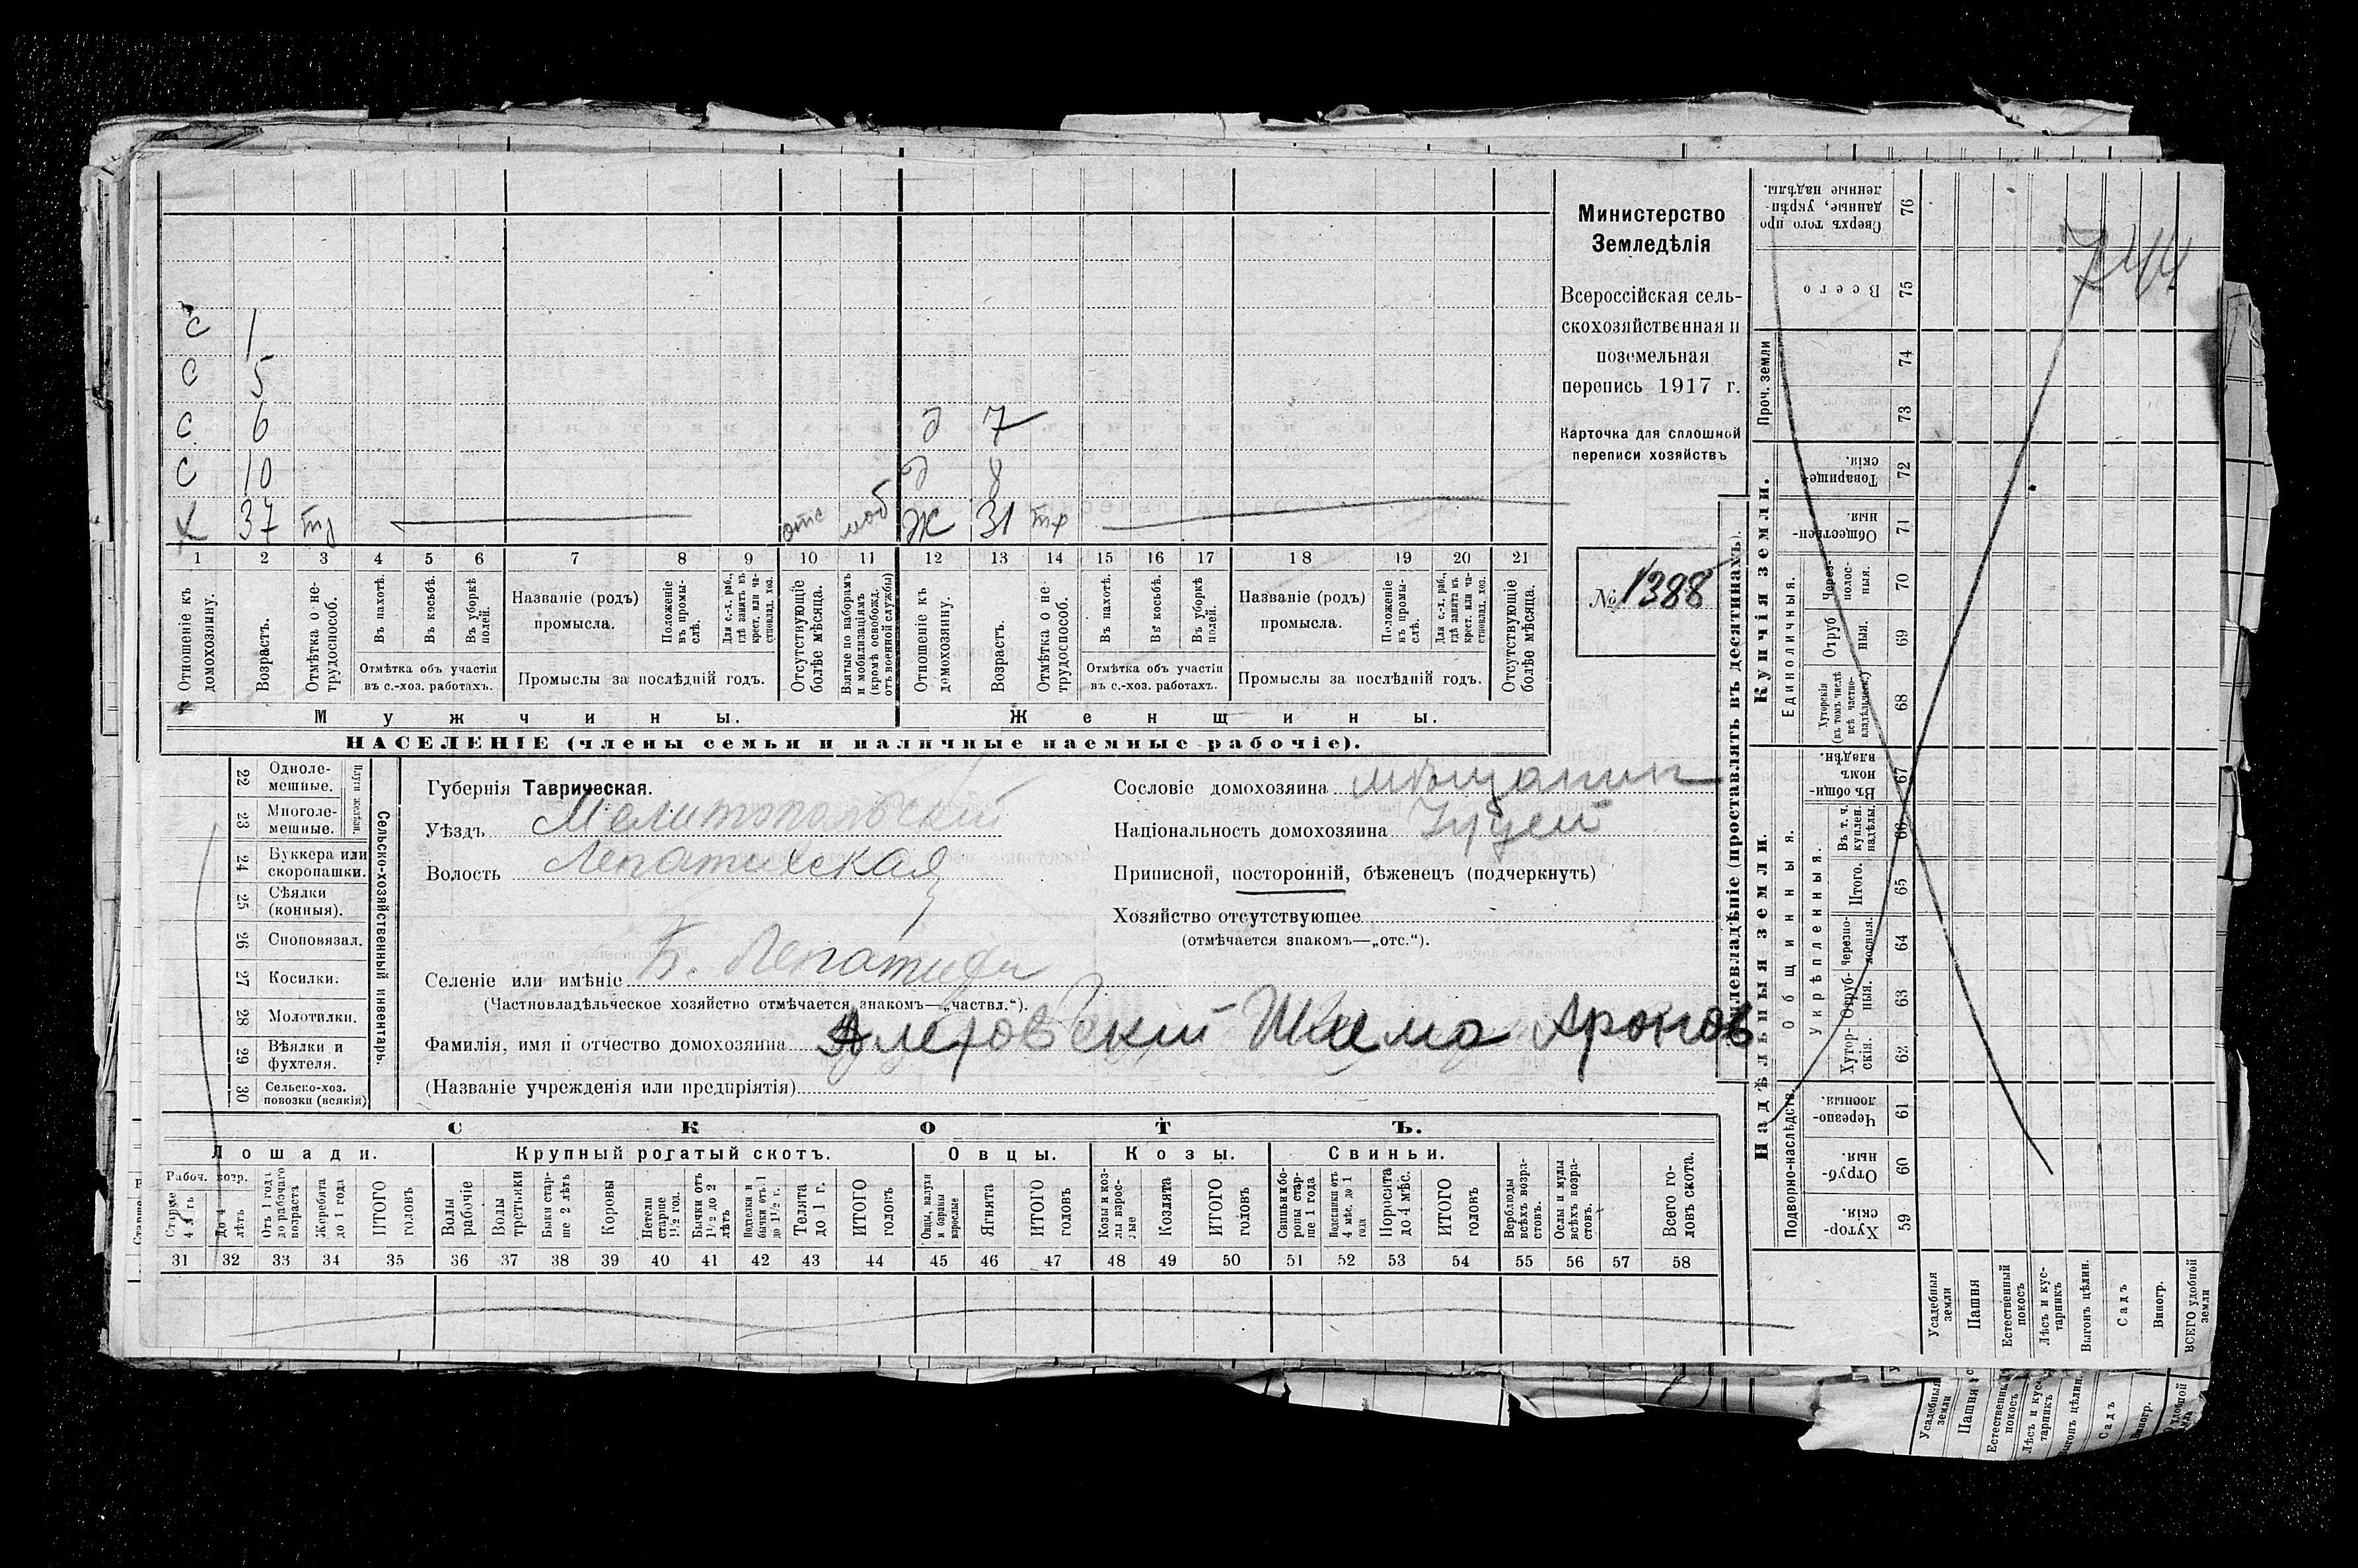 С 1
С 5
С 6 д 7
С 10 д 8
Х 37 отс моб Ж 31 тр
1 2 3 4 5 6 7 8 9 10 11 12 13 14 15 16 17 18 19 20 21
Отношеніе къ домохозяину.
Возрастъ.
Отмѣтка о не-трудоспособ.
Въ пахотѣ.
Въ косьбѣ.
Въ уборкѣ полей.
Отмѣтка объ участіи въ с.-хоз. работахъ.
Названіе (родъ) промысла.
Положеніе въ промы-слѣ.
Для с.-х. раб., гдѣ занятъ въ крест. или ча-стновлад. хоз.
Промыслы за послѣдній годъ.
Отсутствующіе болѣе мѣсяца.
Взятые по наборамъ и мобилизаціямъ (кромѣ освобожд. отъ военной службы)
Отношеніе къ домохозяину.
Возрастъ.
Отмѣтка о не трудоспособ.
Въ пахотѣ.
Въ косьбѣ.
Въ уборкѣ полей.
Отмѣтка объ участіи въ с.-хоз. работахъ.
Названіе (родъ) промысла.
Положеніе въ промы-слѣ.
Для с.-х. раб., гдѣ занята въ крест. или ча-стновлад. хоз.
Промыслы за послѣдній годъ.
Отсутствующіе болѣе мѣсяца.
Мужчины. Женщины.
НАСЕЛЕНІЕ (члены семьи и наличные наемные рабочіе).
Министерство
Земледѣлія
Всероссійская сель-
скохозяйственная и
поземельная
перепись 1917 г.
Карточка для сплошной
переписи хозяйствъ
№ 1388
22 Одноле-мешные.
23 Многоле-мешные.
Плуги желѣзн.
24 Буккера или скоропашки.
25 Сѣялки (конныя).
26 Сноповязал.
27 Косилки.
28 Молотилки.
29 Вѣялки и фухтеля.
30 Сельско-хоз. повозки (всякія)
Сельско-хозяйственный инвентарь.
Губернія Таврическая.
Уѣздъ Мелитопольскій
Волость Лепатихская
Селеніе или имѣніе Б. Лепатиха
(Частновладѣльческое хозяйство отмѣчается знакомъ—„частвл.“).
Фамилія, имя и отчество домохозяина Шима Аронов
(Названіе учрежденія или предпріятія)
Сословіе домохозяина мѣщанин
Національность домохозяина Іудей
Приписной, посторонній, бѣженецъ (подчеркнуть)
Хозяйство отсутствующее
(отмѣчается знакомъ—„отс.“).
СКОТЪ.
Лошади. Крупный рогатый скотъ. Овцы. Козы. Свиньи.
Рабоч. возр.
Старше 4 лѣтъ
До 4 лѣтъ
Отъ 1 года до рабочаго возраста
Жеребята до 1 года
ИТОГО головъ
Волы рабочіе
Волы третьяки
Быки стар-ше 2 лѣтъ
Коровы
Нетели старше 1½ год.
Бычки отъ 1½ до 2 лѣтъ
Подтелки и бычки отъ 1 до 1½ г.
Телята до 1 г.
ИТОГО головъ
Овцы, валухи и бараны взрослые
Ягнята
ИТОГО головъ
Козы и коз-лы взрос-лые
Козлята
ИТОГО головъ
Свиньи и бо-ровы стар-ше 1 года
Подсвинки отъ 4 мѣс. до 1 года
Поросята до 4 мѣс.
ИТОГО головъ
Верблюды всѣхъ возра-стовъ.
Ослы и мулы всѣхъ возра-стовъ.
Всего го-ловъ скота.
31 32 33 34 35 36 37 38 39 40 41 42 43 44 45 46 47 48 49 50 51 52 53 54 55 56 57 58
Землевладѣніе (проставлять въ десятинахъ).
Надѣльныя земли.
Купчія земли.
Проч. земли
Подворно-наслѣдств.
Общинныя.
Укрѣпленныя.
Единоличныя.
Сверхъ того про данные, укрѣп-ленные надѣлы. 76
Всего 75
74
73
Товарище-скія. 72
Обществен-ныя. 71
Через-полос-ныя. 70
Отруб ныя. 69
Хуторскія (въ томъ числѣ всѣ частно-владѣльческ.) 68
Въ общи-номъ владѣн. 67
Въ т. ч. куплен. надѣлы. 66
Итого. 65
Черезпо-лосныя. 64
Отруб-ныя. 63
Хутор-скія. 62
Черезпо-лосныя. 61
Отруб-ныя. 60
Хутор-скія. 59
Усадебныя земли
Пашня
Естественный покосъ
Лѣсъ и кус-тарникъ
Выгонъ цѣлин.
Садъ
Виногр.
ВСЕГО удобной земли
Усадебныя земли
Пашня
Естественны покосъ
Лѣсъ и кус-тарникъ
Выгонъ цѣлин.
Садъ
Виногр.